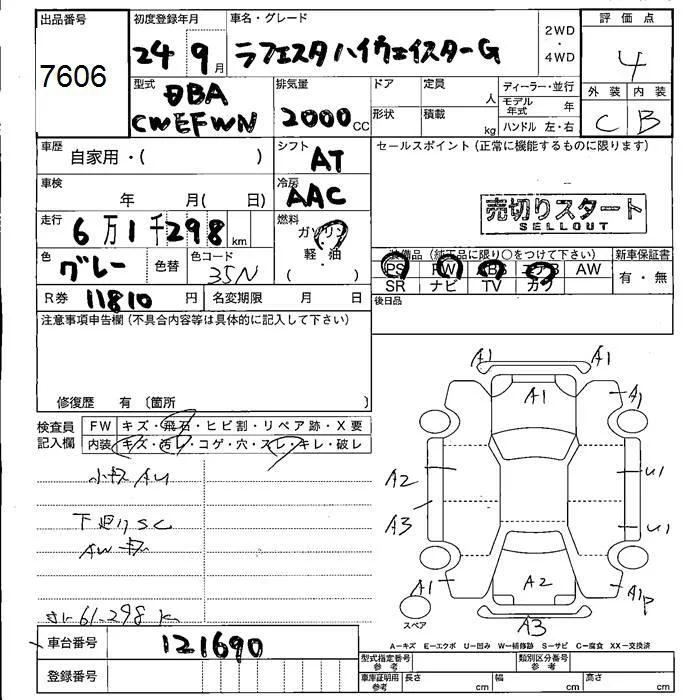 出品番号 初度登録年月 車名・グレード 評価点
7606 24 9月 ラフェスタハイウェイスターG 2WD・4WD 4
型式 排気量 ドア 定員 人 ディーラー・並行 外装 内装
DBA モデル年式 年
CWEFWN 2000cc 形状 積載 kg ハンドル 左・右 C B
車歴 自家用・( ) シフト AT セールスポイント(正常に機能するものに限ります)
車検 年 月( 日) 冷房 AAC
売切りスタート
SELLOUT
走行 6万1千298km 燃料 ガソリン・軽・油 ( )
色 グレー 色替 色コード 35N
装備品(純正品に限り○をつけて下さい) 新車保証書
PS PW ABS エアB AW 有・無
SR ナビ TV カワ
R券 11810円 名変期限 月 日 後日品
注意事項申告欄(不具合内容等は具体的に記入して下さい)
修復歴 有 〔箇所 〕
検査員記入欄 FW キズ・飛石・ヒビ割・リペア跡・X要
内装 キズ・汚レ・コゲ・穴・スレ・キレ・破レ
小キズ AU
下廻りSC
AWキズ
61,298k
A1 A1
A1 A1
A2 U1
A3 U1
A1 A2 A1P
スペア A3
A-キズ E-エクボ U-凹み W-補修跡 S-サビ C-腐食 XX-交換済
車台番号 121690
型式指定番号 参考 類別区分番号 参考
登録番号
車庫証明用 参考 長さ cm 幅 cm 高さ cm